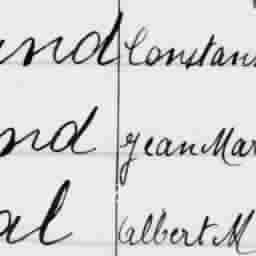 and Constans
nd Jean Mar
al Albert M